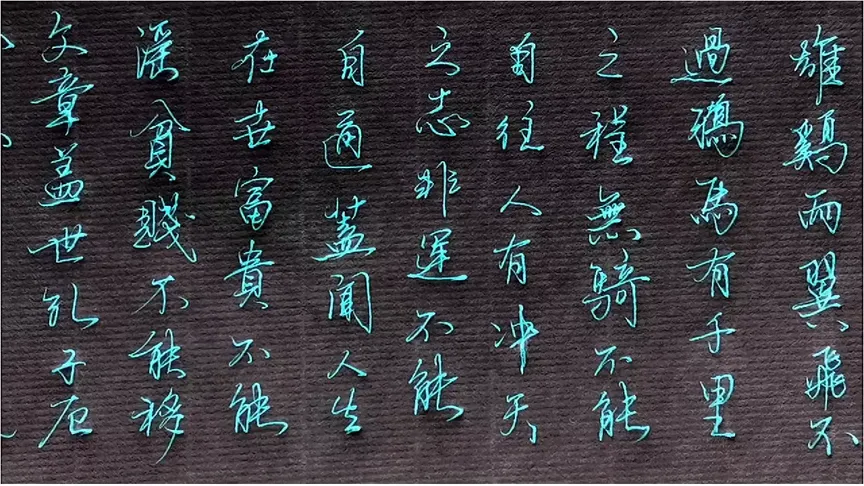 雄鷄两翼飛不
過鴉馬有千里
之程無騎不能
自往人有冲天
之志非運不能
自通蓋聞人生
在世富貴不能
淫貧賤不能移
文章盖世孔子厄